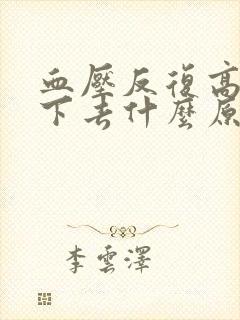 血壓反復高
下去什麼原
李雲澤